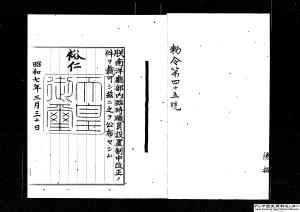 勅令第四十五号
朕南洋廳部内臨時職員設置制中改正ノ
件ヲ裁可シ茲ニ之ヲ公布セシム
裕仁
天皇御璽
昭和七年三月三十日
アジア歴史資料センター